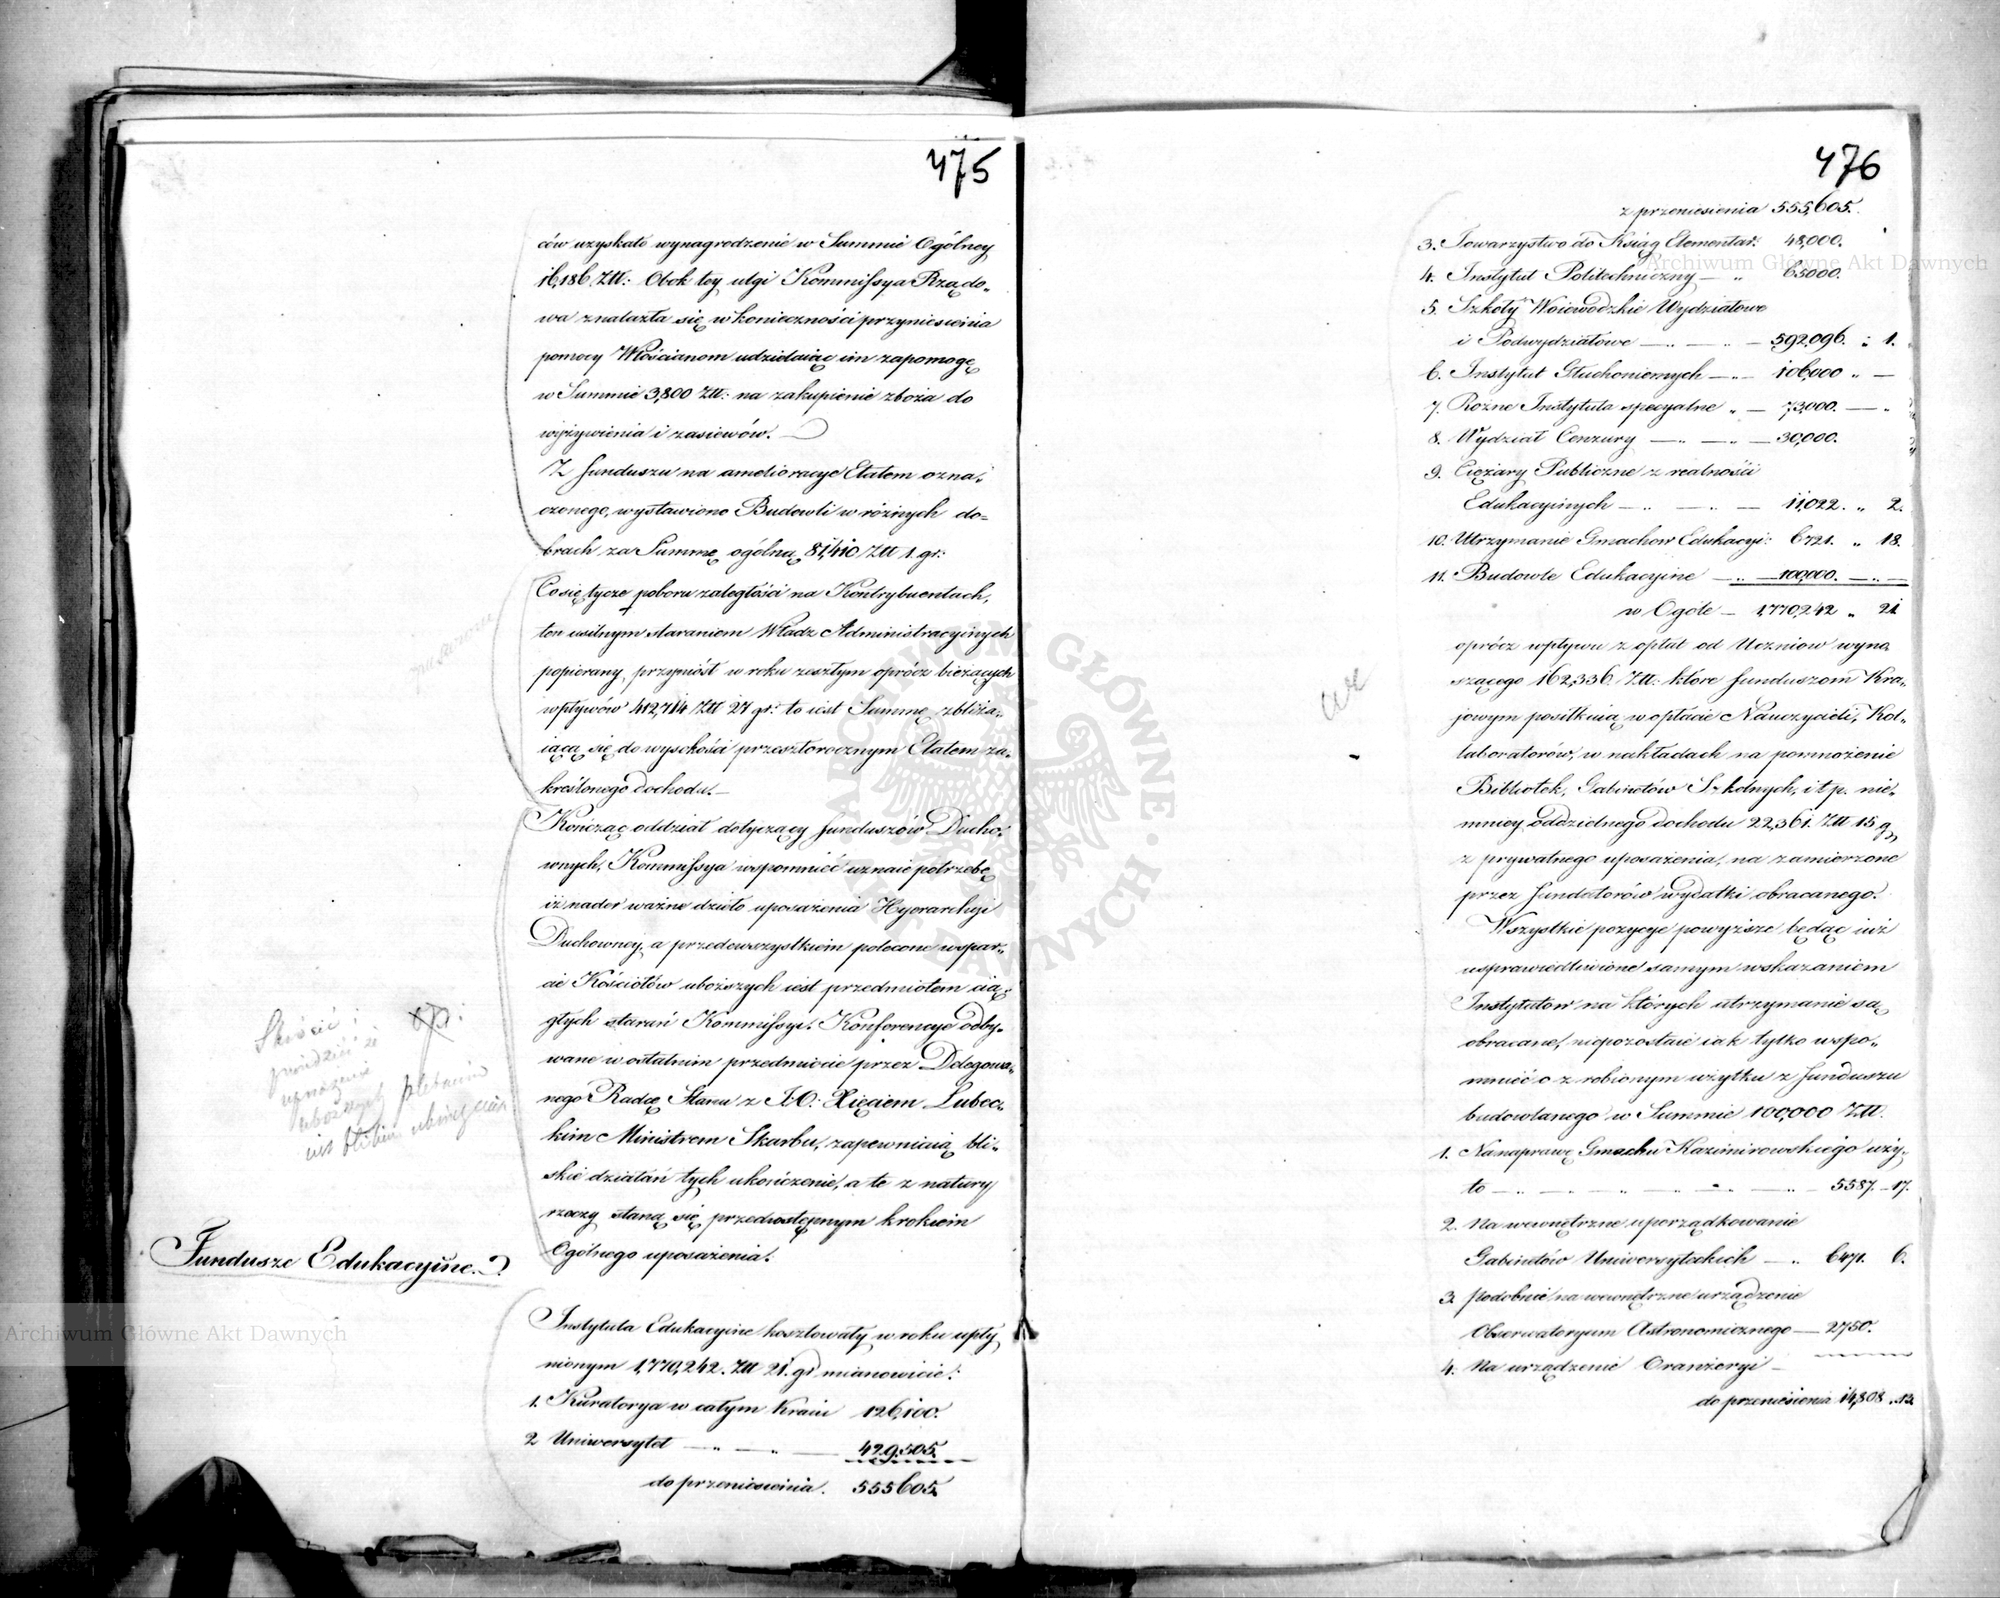 475
ców uzyskało wynagrodzenie w Summie Ogólney
16,186 Złł: Obok tey ulgi Kommissya Rządo-
wa znalazła się w konieczności przyniesienia
pomocy Włościanom udzielaiąc im zapomogę
w Summie 3,800 Złł: na zakupienie zboża do
wyżywienia i zasiewów. —
Z funduszu na amelioracye Etatem ozna-
czonego, wystawiono Budowli w różnych do=
brach za Summę ogólną 81,410 Złł 1. gr:
Co się tycze poboru zaległości na Kontrybuentach,
ten usilnym staraniem Władz Administracyinych
popierany, przyniósł w roku zeszłym oprócz bieżących
wpływów 412,714 Złł 27 gr: to iest Summę zbliża-
iącą się do wysokości przeszłorocznym Etatem za-
kreślonego dochodu. —
Kończąc oddział dotyczący funduszów Ducho-
wnych, Kommissya wspomnieć uznaie potrzebę
iż nader ważne dzieło uposażenia Hyerarchyi
Duchowney, a przedewszystkiem polecone wspar-
cie Kościołów uboższych iest przedmiotem cią-
głych starań Kommissyi. Konferencye odby-
wane w ostatnim przedmiocie przez Delegowa-
nego Radcę Stanu z J.O: Xięciem Lubec-
kim Ministrem Skarbu, zapewniaią bli-
skie działań tych ukończenie, a te z natury
rzeczy staną się przedwstępnym krokiem
Ogólnego uposażenia.
Fundusze Edukacyine.
Instytuta Edukacyine kosztowały w roku upły
nionym 1,770,242. Złł 21. gr mianowicie:
1. Kuratorya w całym Kraiu 126,100.
2 Uniwersytet — " — " — 429,505.
do przeniesienia. 555605.
476
z przeniesienia 555,605.
3. Towarzystwo do Ksiąg Elementar: 48,000.
4. Instytut Politechniczny — " 65000.
5. Szkoły Woiewodzkie Wydziałowe
i Podwydziałowe — " — " — 592,096. " 1.
6. Instytut Głuchoniemych — " — 106,000 " —
7. Rożne Instytuta specyalne " — 73,000. — "
8. Wydział Cenzury — " — " — 30,000.
9. Ciężary Publiczne z realności
Edukacyinych — " — " — 11,022. " 2.
10. Utrzymanie Gmachow Edukacyi: 6721. " 18.
11. Budowle Edukacyine — " — 100,000. — " —
w Ogóle — 1,770,242 " 21
oprócz wpływu z opłat od Uczniow wyno-
szącego 162,336. Złł: które funduszom Kra-
jowym posiłkuią w opłacie Nauczycieli, Kol-
laboratorów, w nakładach na pomnożenie
Bibliotek, Gabinetów Szkolnych, i t.p. nie-
mniey oddzielnego dochodu 22,361. Złł 15 gr
z prywatnego uposażenia, na zamierzone
przez fundatorów wydatki obracanego.
Wszystkie pozycye powyższe będąc iuż
usprawiedliwione samym wskazaniem
Instytutów na których utrzymanie są
obracane, niepozostaie iak tylko wspo-
mnieć o zrobionym użytku z funduszu
budowlanego w Summie 100,000 Złł.
1. Na naprawę Gmachu Kazimirowskiego uży-
to — " — " — " — " — 5587. — 17.
2. Na wewnętrzne uporządkowanie
Gabinetów Uniwersyteckich — " 6471. 6.
3. Podobnie na wewnętrzne urządzenie
Obserwatoryum Astronomicznego — 2750.
4. Na urządzenie Oranżeryi —
do przeniesienia 14,808 " 13.
Archiwum Główne Akt Dawnych
Archiwum Główne Akt Dawnych
ARCHIWUM GŁÓWNE AKT DAWNYCH